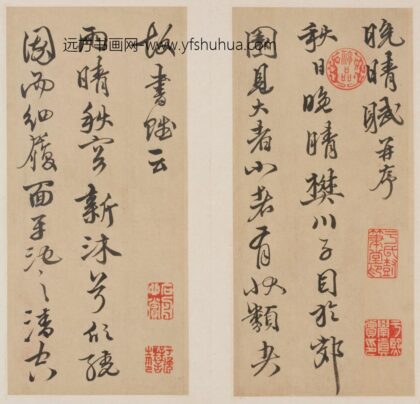 远方书画网-www.yfshuhua.com
晚晴賦并序
秋日晚晴樊川子目於郊
園見大者小者有狀類者
故書賦云
雨晴秋容新沐兮忻繞
園而細履面平池之清空